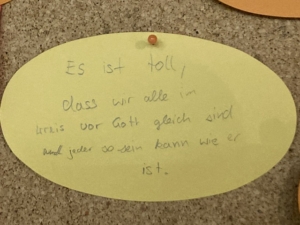 Es ist toll,
dass wir alle im
kreis vor Gott gleich sind
und jeder so sein kann wie er
ist.